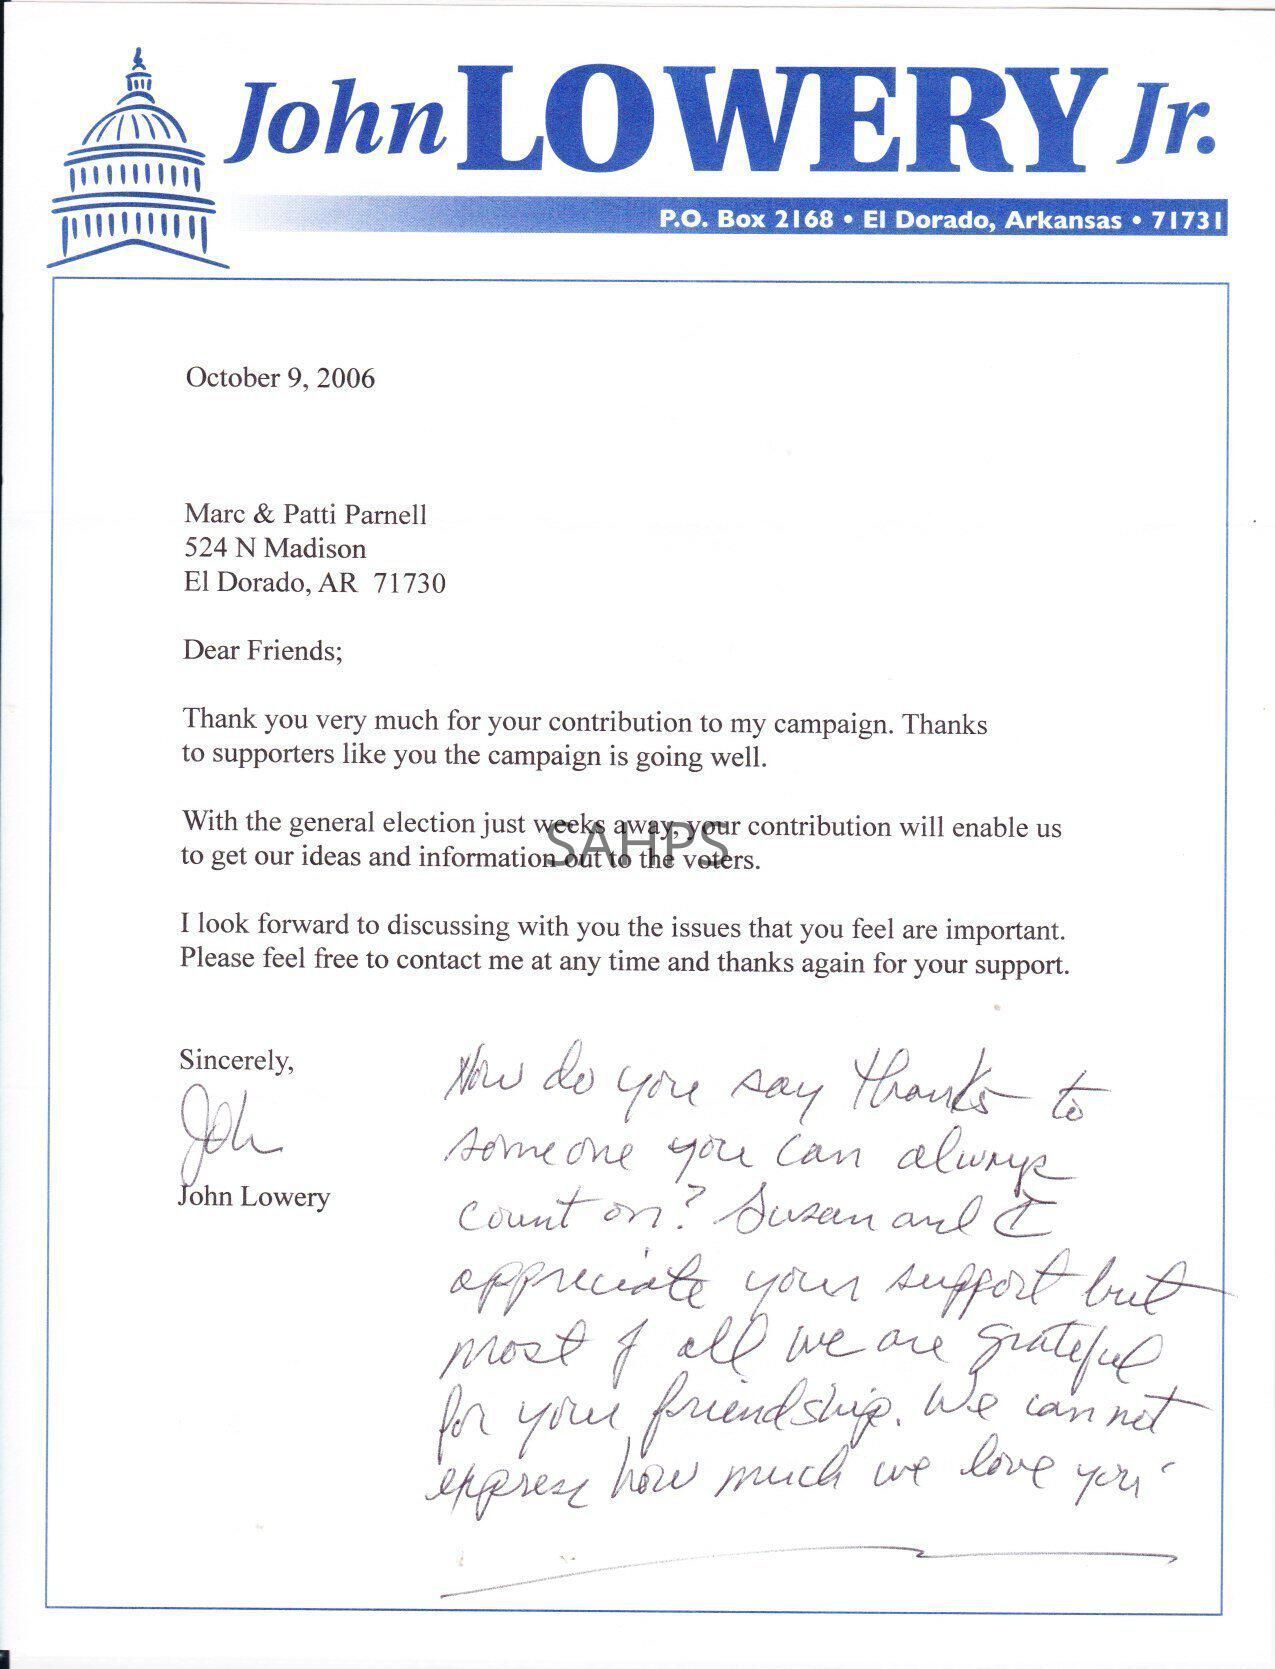 John LOWERY Jr.
P.O. Box 2168 • El Dorado, Arkansas • 71731
October 9, 2006
Marc & Patti Parnell
524 N Madison
El Dorado, AR 71730
Dear Friends;
Thank you very much for your contribution to my campaign. Thanks
to supporters like you the campaign is going well.
With the general election just weeks away, your contribution will enable us
to get our ideas and information out to the voters.
SAHPS
I look forward to discussing with you the issues that you feel are important.
Please feel free to contact me at any time and thanks again for your support.
Sincerely,
John
John Lowery
How do you say thanks to
someone you can always
count on? Susan and I
appreciate your support but
most of all we are grateful
for your friendship. We cannot
express how much we love you